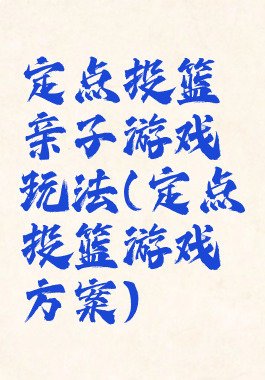 定点投篮
亲子游戏
玩法(定点
投篮游戏
方案)